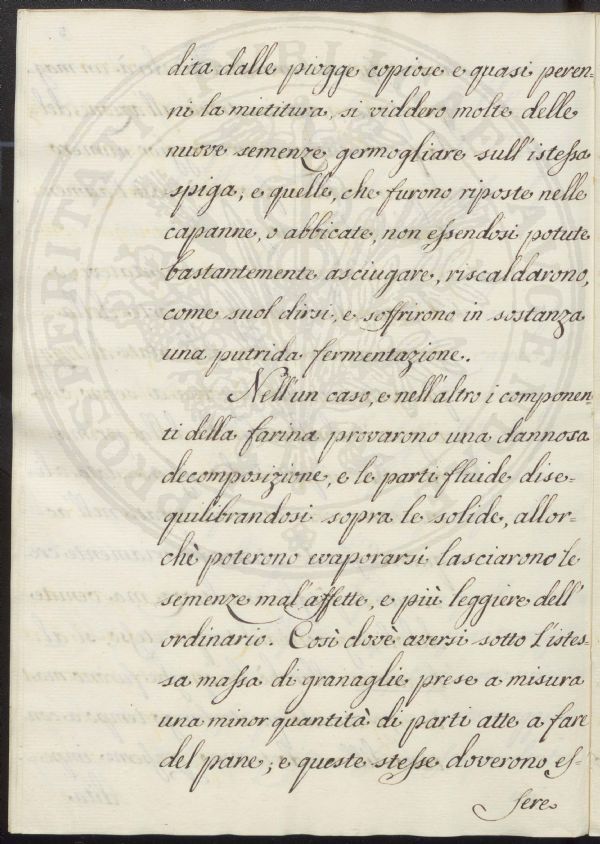 dita dalle piogge copiose e quasi peren-
ni la mietitura, si viddero molte delle
nuove semenze germogliare sull'istessa
spiga, e quelle, che furono riposte nelle
capanne, o abbicate, non essendosi potute
bastantemente asciugare, riscaldarono,
come suol dirsi, e soffrirono in sostanza
una putrida fermentazione.
Nell'un caso, e nell'altro i componen-
ti della farina provarono una dannosa
decomposizione, e le parti fluide dise=
quilibrandosi sopra le solide, allor=
chè poterono evaporarsi lasciarono le
semenze mal'affette, e più leggiere dell'
ordinario. Così dovè aversi sotto l'istes-
sa massa di granaglie prese a misura
una minor quantità di parti atte a fare
del pane; e queste stesse doverono es=
sere